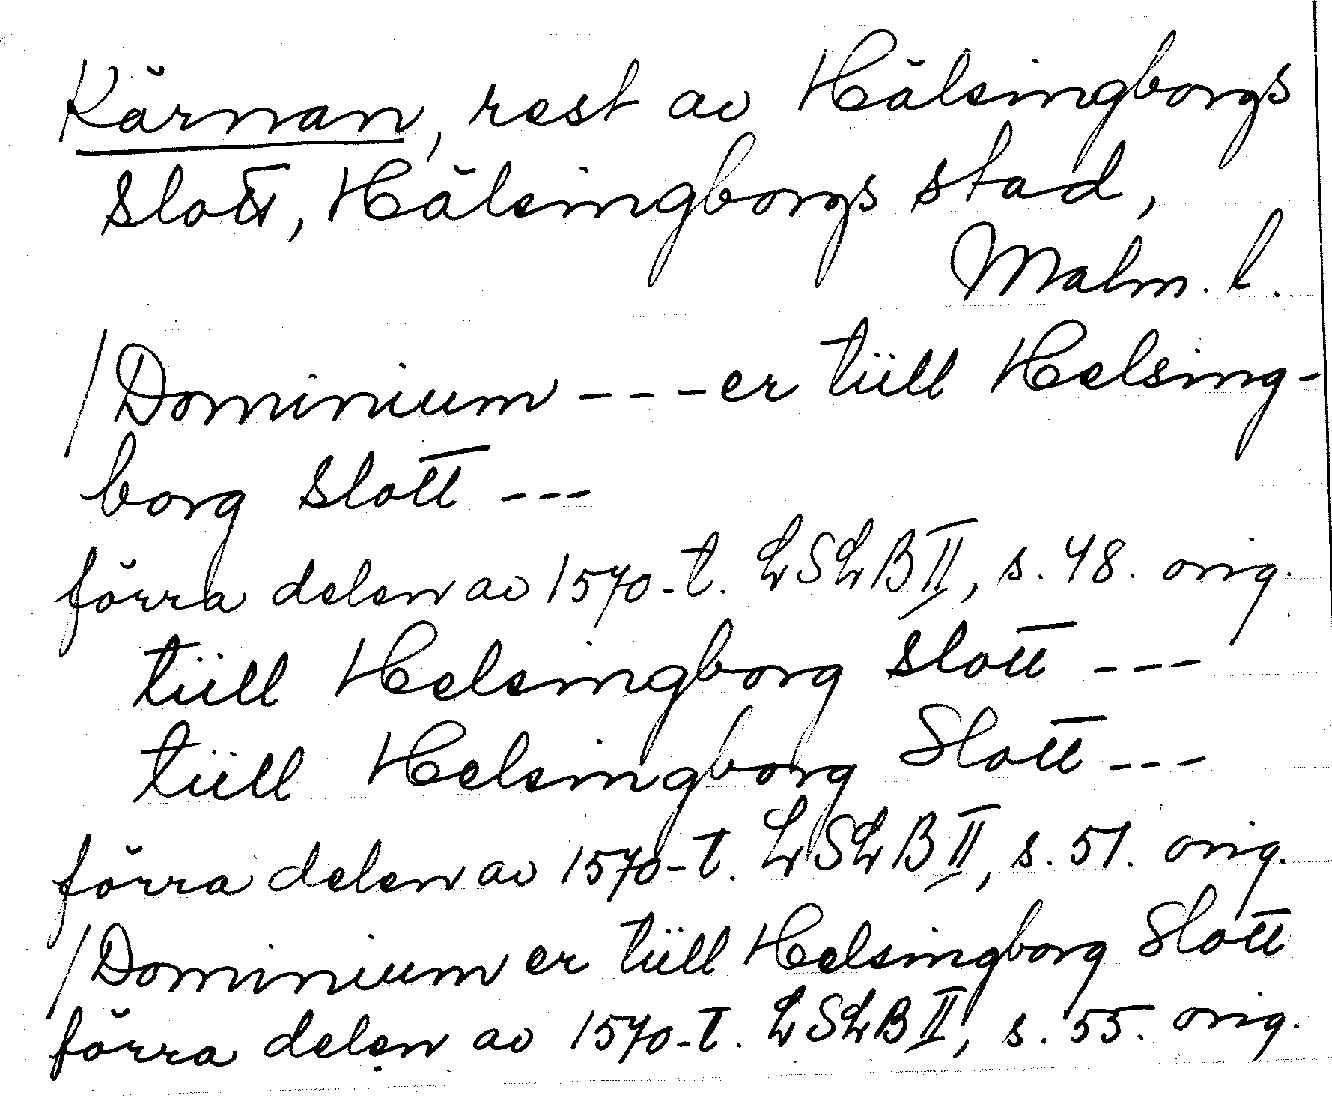 Kärnan, rest av Hälsingborgs
slott, Hälsingborgs stad,
Malm. l.
/Dominium --- er tiill Helsing-
borg slott ---
förra delen av 1570-t. LSLB II, s. 48. orig.
tiill Helsingborg slott ---
tiill Helsingborg Slott ---
förra delen av 1570-t. LSLB II, s. 51. orig.
/Dominium er tiill Helsingborg Slott
förra delen av 1570-t. LSLB II, s. 55. orig.